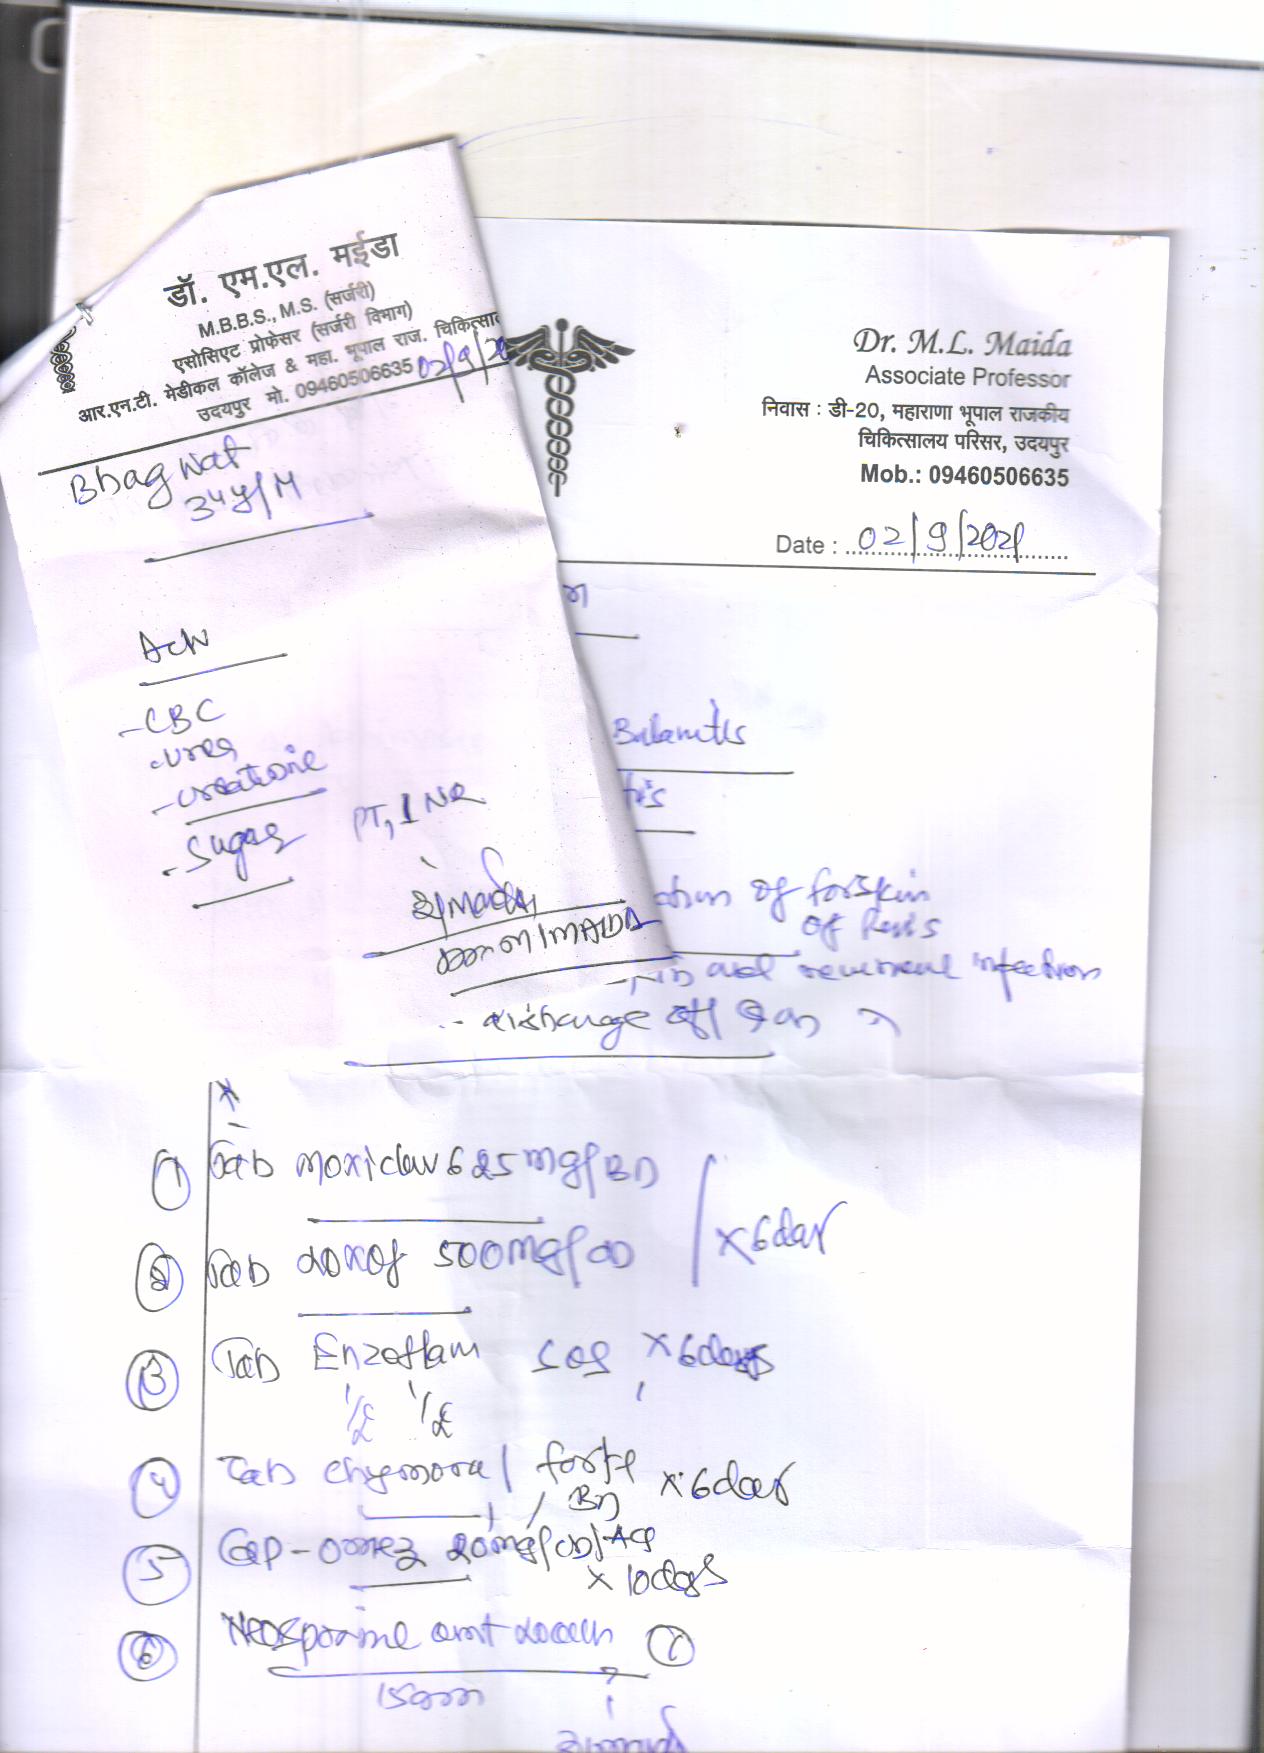 डॉ. एम.एल. मईडा
M.B.B.S., M.S. (सर्जरी)
एसोसिएट प्रोफेसर (सर्जरी विभाग)
आर.एन.टी. मेडीकल कॉलेज & महा. भूपाल राज. चिकित्सा
उदयपुर मो. 09460506635 02/9/20
Bhagwat
34y/M
CBC
urea
Sugar
PT, INR
Dr. M.L. Maida
Associate Professor
निवास : डी-20, महाराणा भूपाल राजकीय
चिकित्सालय परिसर, उदयपुर
Mob.: 09460506635
Date : 02/9/2021
Balanitis
tis
of forskin
of Penis
and recurrent infection
discharge off & on
① Tab moxiclav 625mg/BD
② Tab 500mg/OD
x 6day
③ Tab Enzoflam SOS x 6days
④ Tab chymoral forte x 6day
BD
⑤ Cap-omez 20mg/OD/AC
x 10days
⑥ Neosporine locally
15gm